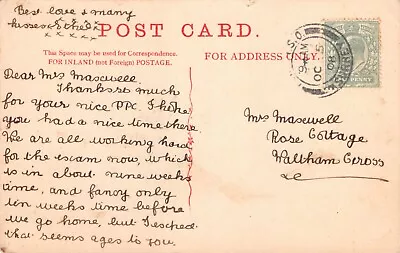 Best love & many
kisses
x x x x x
POST CARD.
This Space may be used for Correspondence.
FOR INLAND (not Foreign) POSTAGE.
FOR ADDRESS ONLY.
Dear Mrs Maxwell
Thanks so much
for your nice PPC. I hope
you had a nice time there.
We are all working hard
for the exam now, which
is in about nine weeks
time, and fancy only
ten weeks time before
we go home, but I expect
that seems ages to you.
S.O.
OC 5
08
PENNY
Mrs Maxwell
Rose Cottage
Waltham Cross